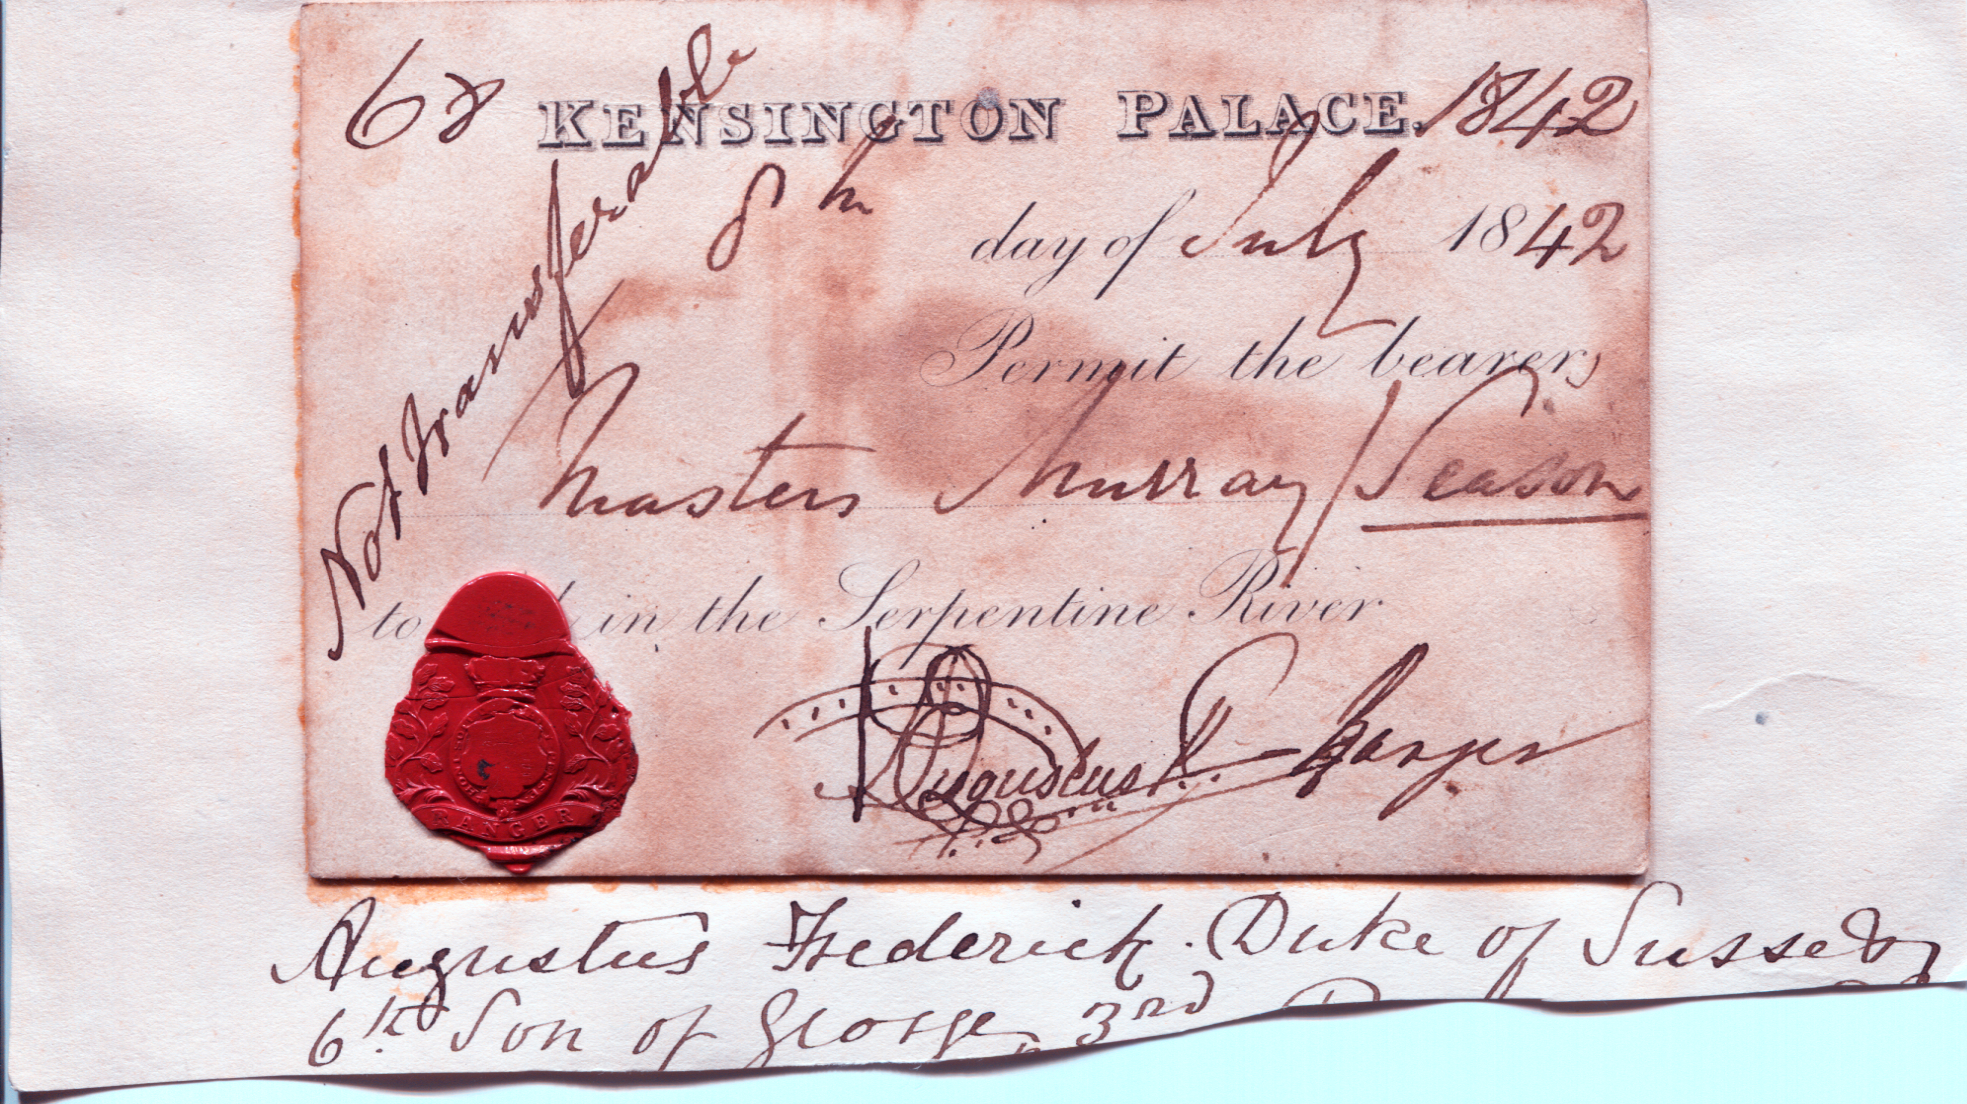 68 KENSINGTON PALACE. 1842
Not transferable
8th day of July 1842
Permit the bearer,
Masters Murray / Season
to in the Serpentine River
Augustus P. - Ranger
RANGER
Augustus Frederick. Duke of Sussex,
6th Son of George 3rd